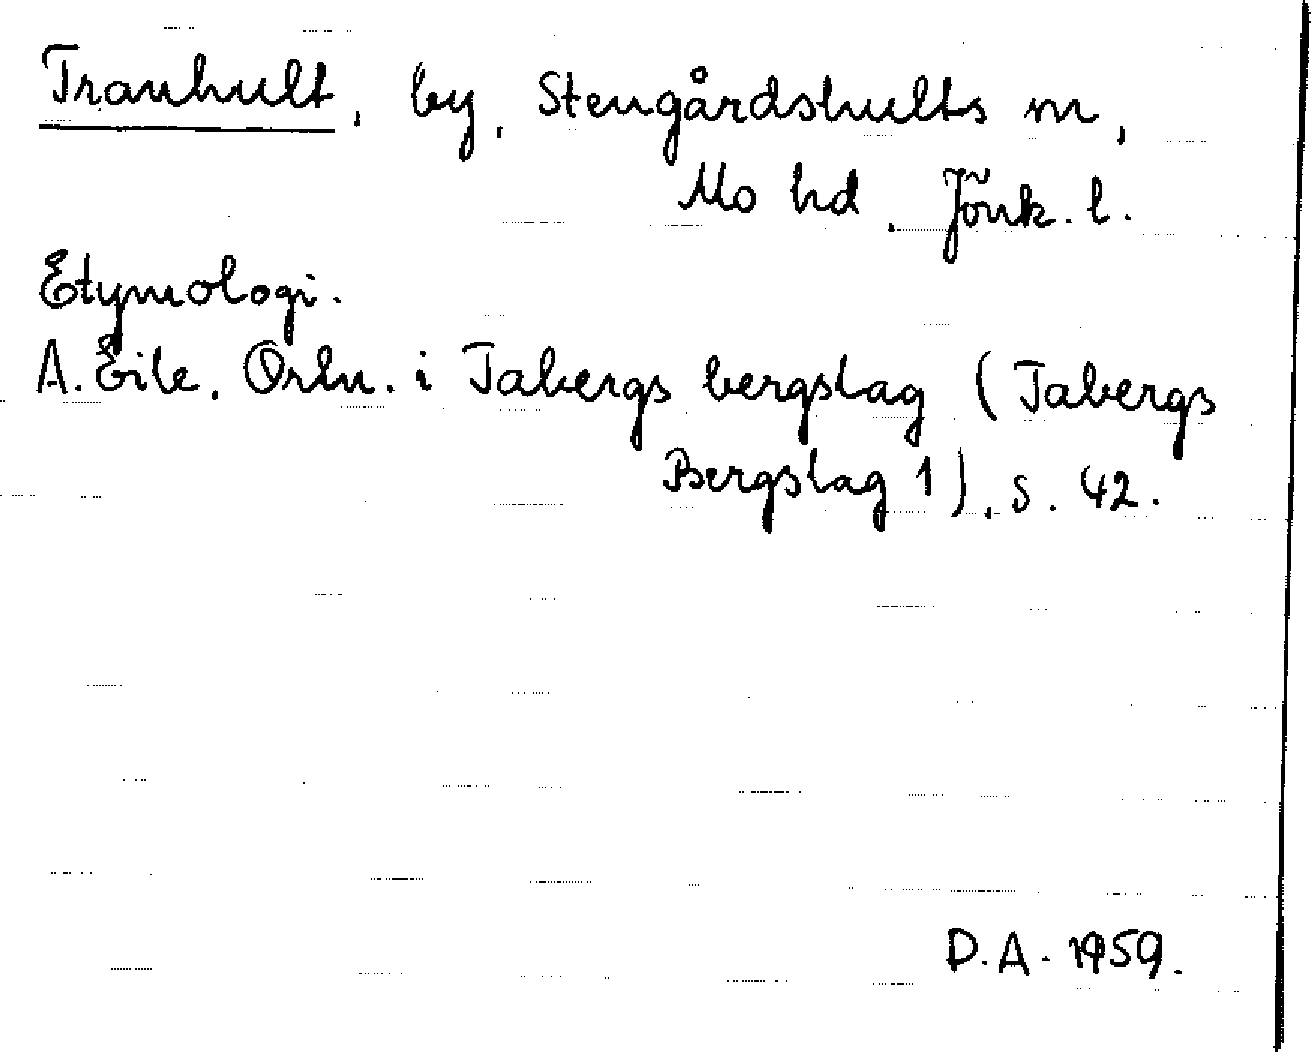 Tranhult, by, Stengårdshults sn,
Mo hd, Jönk. l.
Etymologi.
A. Ejle, Ortn. i Tabergs bergslag (Tabergs
Bergslag 1), s. 42.
D.A. 1959.